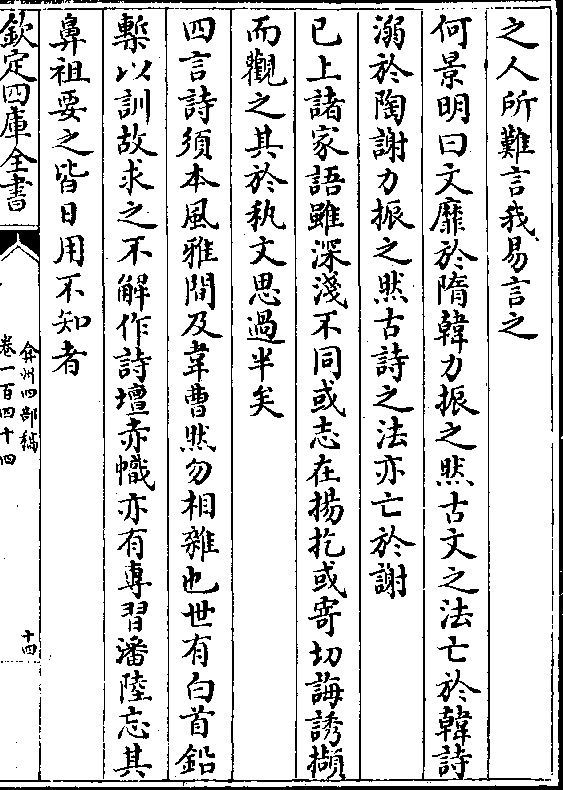 之人所難言我易言之
何景明曰文靡於隋韓力振之然古文之法亡於韓詩
溺於陶謝力振之然古詩之法亦亡於謝
已上諸家語雖深淺不同或志在揚扢或寄切誨誘擷
而觀之其於秇文思過半矣
四言詩須本風雅間及韋曹然勿相雜也世有白首鉛
槧以訓故求之不解作詩壇赤幟亦有專習潘陸忘其
鼻祖要之皆日用不知者
欽定四庫全書
弇州四部稿
卷一百四十四
十四